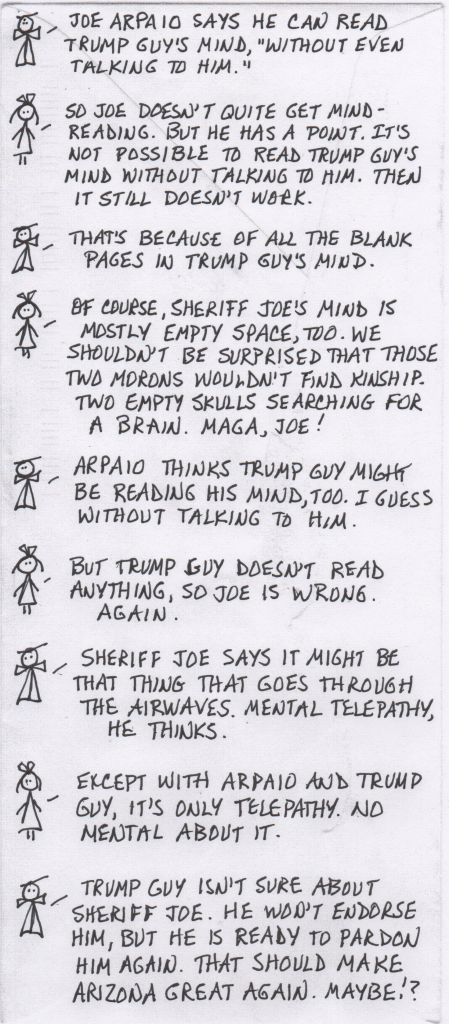 JOE ARPAIO SAYS HE CAN READ
TRUMP GUY'S MIND, "WITHOUT EVEN
TALKING TO HIM."
SO JOE DOESN'T QUITE GET MIND-
READING. BUT HE HAS A POINT. IT'S
NOT POSSIBLE TO READ TRUMP GUY'S
MIND WITHOUT TALKING TO HIM. THEN
IT STILL DOESN'T WORK.
THAT'S BECAUSE OF ALL THE BLANK
PAGES IN TRUMP GUY'S MIND.
OF COURSE, SHERIFF JOE'S MIND IS
MOSTLY EMPTY SPACE, TOO. WE
SHOULDN'T BE SURPRISED THAT THOSE
TWO MORONS WOULDN'T FIND KINSHIP.
TWO EMPTY SKULLS SEARCHING FOR
A BRAIN. MAGA, JOE!
ARPAIO THINKS TRUMP GUY MIGHT
BE READING HIS MIND, TOO. I GUESS
WITHOUT TALKING TO HIM.
BUT TRUMP GUY DOESN'T READ
ANYTHING, SO JOE IS WRONG.
AGAIN.
SHERIFF JOE SAYS IT MIGHT BE
THAT THING THAT GOES THROUGH
THE AIRWAVES. MENTAL TELEPATHY,
HE THINKS.
EXCEPT WITH ARPAIO AND TRUMP
GUY, IT'S ONLY TELEPATHY. NO
MENTAL ABOUT IT.
TRUMP GUY ISN'T SURE ABOUT
SHERIFF JOE. HE WON'T ENDORSE
HIM, BUT HE IS READY TO PARDON
HIM AGAIN. THAT SHOULD MAKE
ARIZONA GREAT AGAIN. MAYBE!?